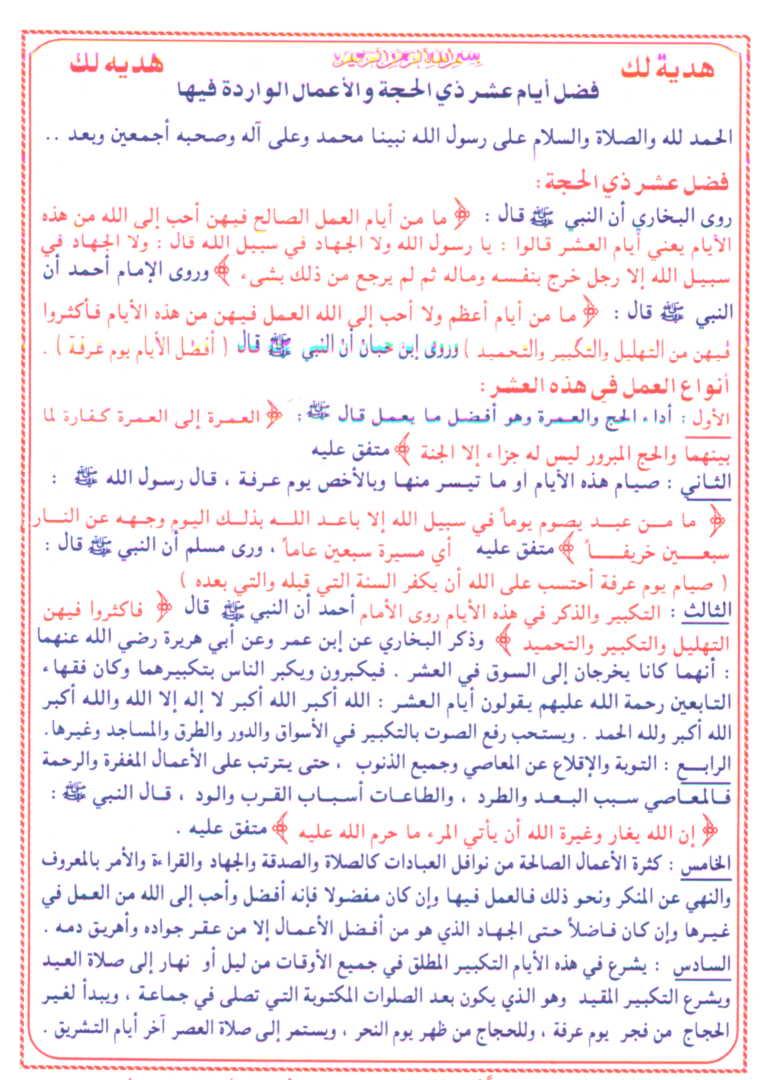 هدية لك
بسم الله الرحمن الرحيم
هديه لك
فضل أيام عشر ذي الحجة والأعمال الواردة فيها
الحمد لله والصلاة والسلام على رسول الله نبينا محمد وعلى آله وصحبه أجمعين وبعد ..
فضل عشر ذي الحجة :
روى البخاري أن النبي ﷺ قال : ﴿ ما من أيام العمل الصالح فيهن أحب إلى الله من هذه
الأيام يعني أيام العشر قالوا : يا رسول الله ولا الجهاد في سبيل الله قال : ولا الجهاد في
سبيل الله إلا رجل خرج بنفسه وماله ثم لم يرجع من ذلك بشىء ﴾ وروى الإمام أحمد أن
النبي ﷺ قال : ﴿ ما من أيام أعظم ولا أحب إلى الله العمل فيهن من هذه الأيام فأكثروا
فيهن من التهليل والتكبير والتحميد ) وروى إبن حبان أن النبي ﷺ قال ( أفضل الأيام يوم عرفة ) .
أنواع العمل في هذه العشر :
الأول : أداء الحج والعمرة وهو أفضل ما يعمل قال ﷺ : ﴿ العمرة إلى العمرة كفارة لما
بينهما والحج المبرور ليس له جزاء إلا الجنة ﴾ متفق عليه
الثاني : صيام هذه الأيام او ما تيسر منها وبالأخص يوم عرفة ، قال رسول الله ﷺ :
﴿ ما مــن عبــد يصوم يوماً في سبيل الله إلا باعــد اللــه بذلــك اليوم وجهــه عن النــار
سبعـــين خريفــــاً ﴾ متفق عليه أي مسيرة سبعين عاماً ، ورى مسلم أن النبي ﷺ قال :
( صيام يوم عرفة أحتسب على الله أن يكفر السنة التي قبله والتي بعده )
الثالث : التكبير والذكر في هذه الأيام روى الأمام أحمد أن النبي ﷺ قال ﴿ فاكثروا فيهن
التهليل والتكبير والتحميد ﴾ وذكر البخاري عن إبن عمر وعن أبي هريرة رضي الله عنهما
: أنهما كانا يخرجان إلى السوق في العشر . فيكبرون ويكبر الناس بتكبيرهما وكان فقهاء
التابعين رحمة الله عليهم يقولون أيام العشر : الله أكبر الله أكبر لا إله إلا الله والله أكبر
الله أكبر ولله الحمد . ويستحب رفع الصوت بالتكبير في الأسواق والدور والطرق والمساجد وغيرها.
الرابـــع : التوبة والإقلاع عن المعاصي وجميع الذنوب ، حتى يترتب على الأعمال المغفرة والرحمة
فالمعاصي سبب البعد والطرد ، والطاعات أسباب القرب والود ، قال النبي ﷺ :
﴿ إن الله يغار وغيرة الله أن يأتي المرء ما حرم الله عليه ﴾ متفق عليه .
الخامس : كثرة الأعمال الصالحة من نوافل العبادات كالصلاة والصدقة والجهاد والقراءة والأمر بالمعروف
والنهي عن المنكر ونحو ذلك فالعمل فيها وإن كان مفضولا فإنه أفضل وأحب إلى الله من العمل في
غيرها وإن كان فاضلاً حتى الجهاد الذي هو من أفضل الأعمال إلا من عقر جواده وأهريق دمه .
السادس : يشرع في هذه الأيام التكبير المطلق في جميع الأوقات من ليل أو نهار إلى صلاة العيد
ويشرع التكبير المقيد وهو الذي يكون بعد الصلوات المكتوبة التي تصلى في جماعة ، ويبدأ لغير
الحجاج من فجر يوم عرفة ، وللحجاج من ظهر يوم النحر ، ويستمر إلى صلاة العصر آخر أيام التشريق .